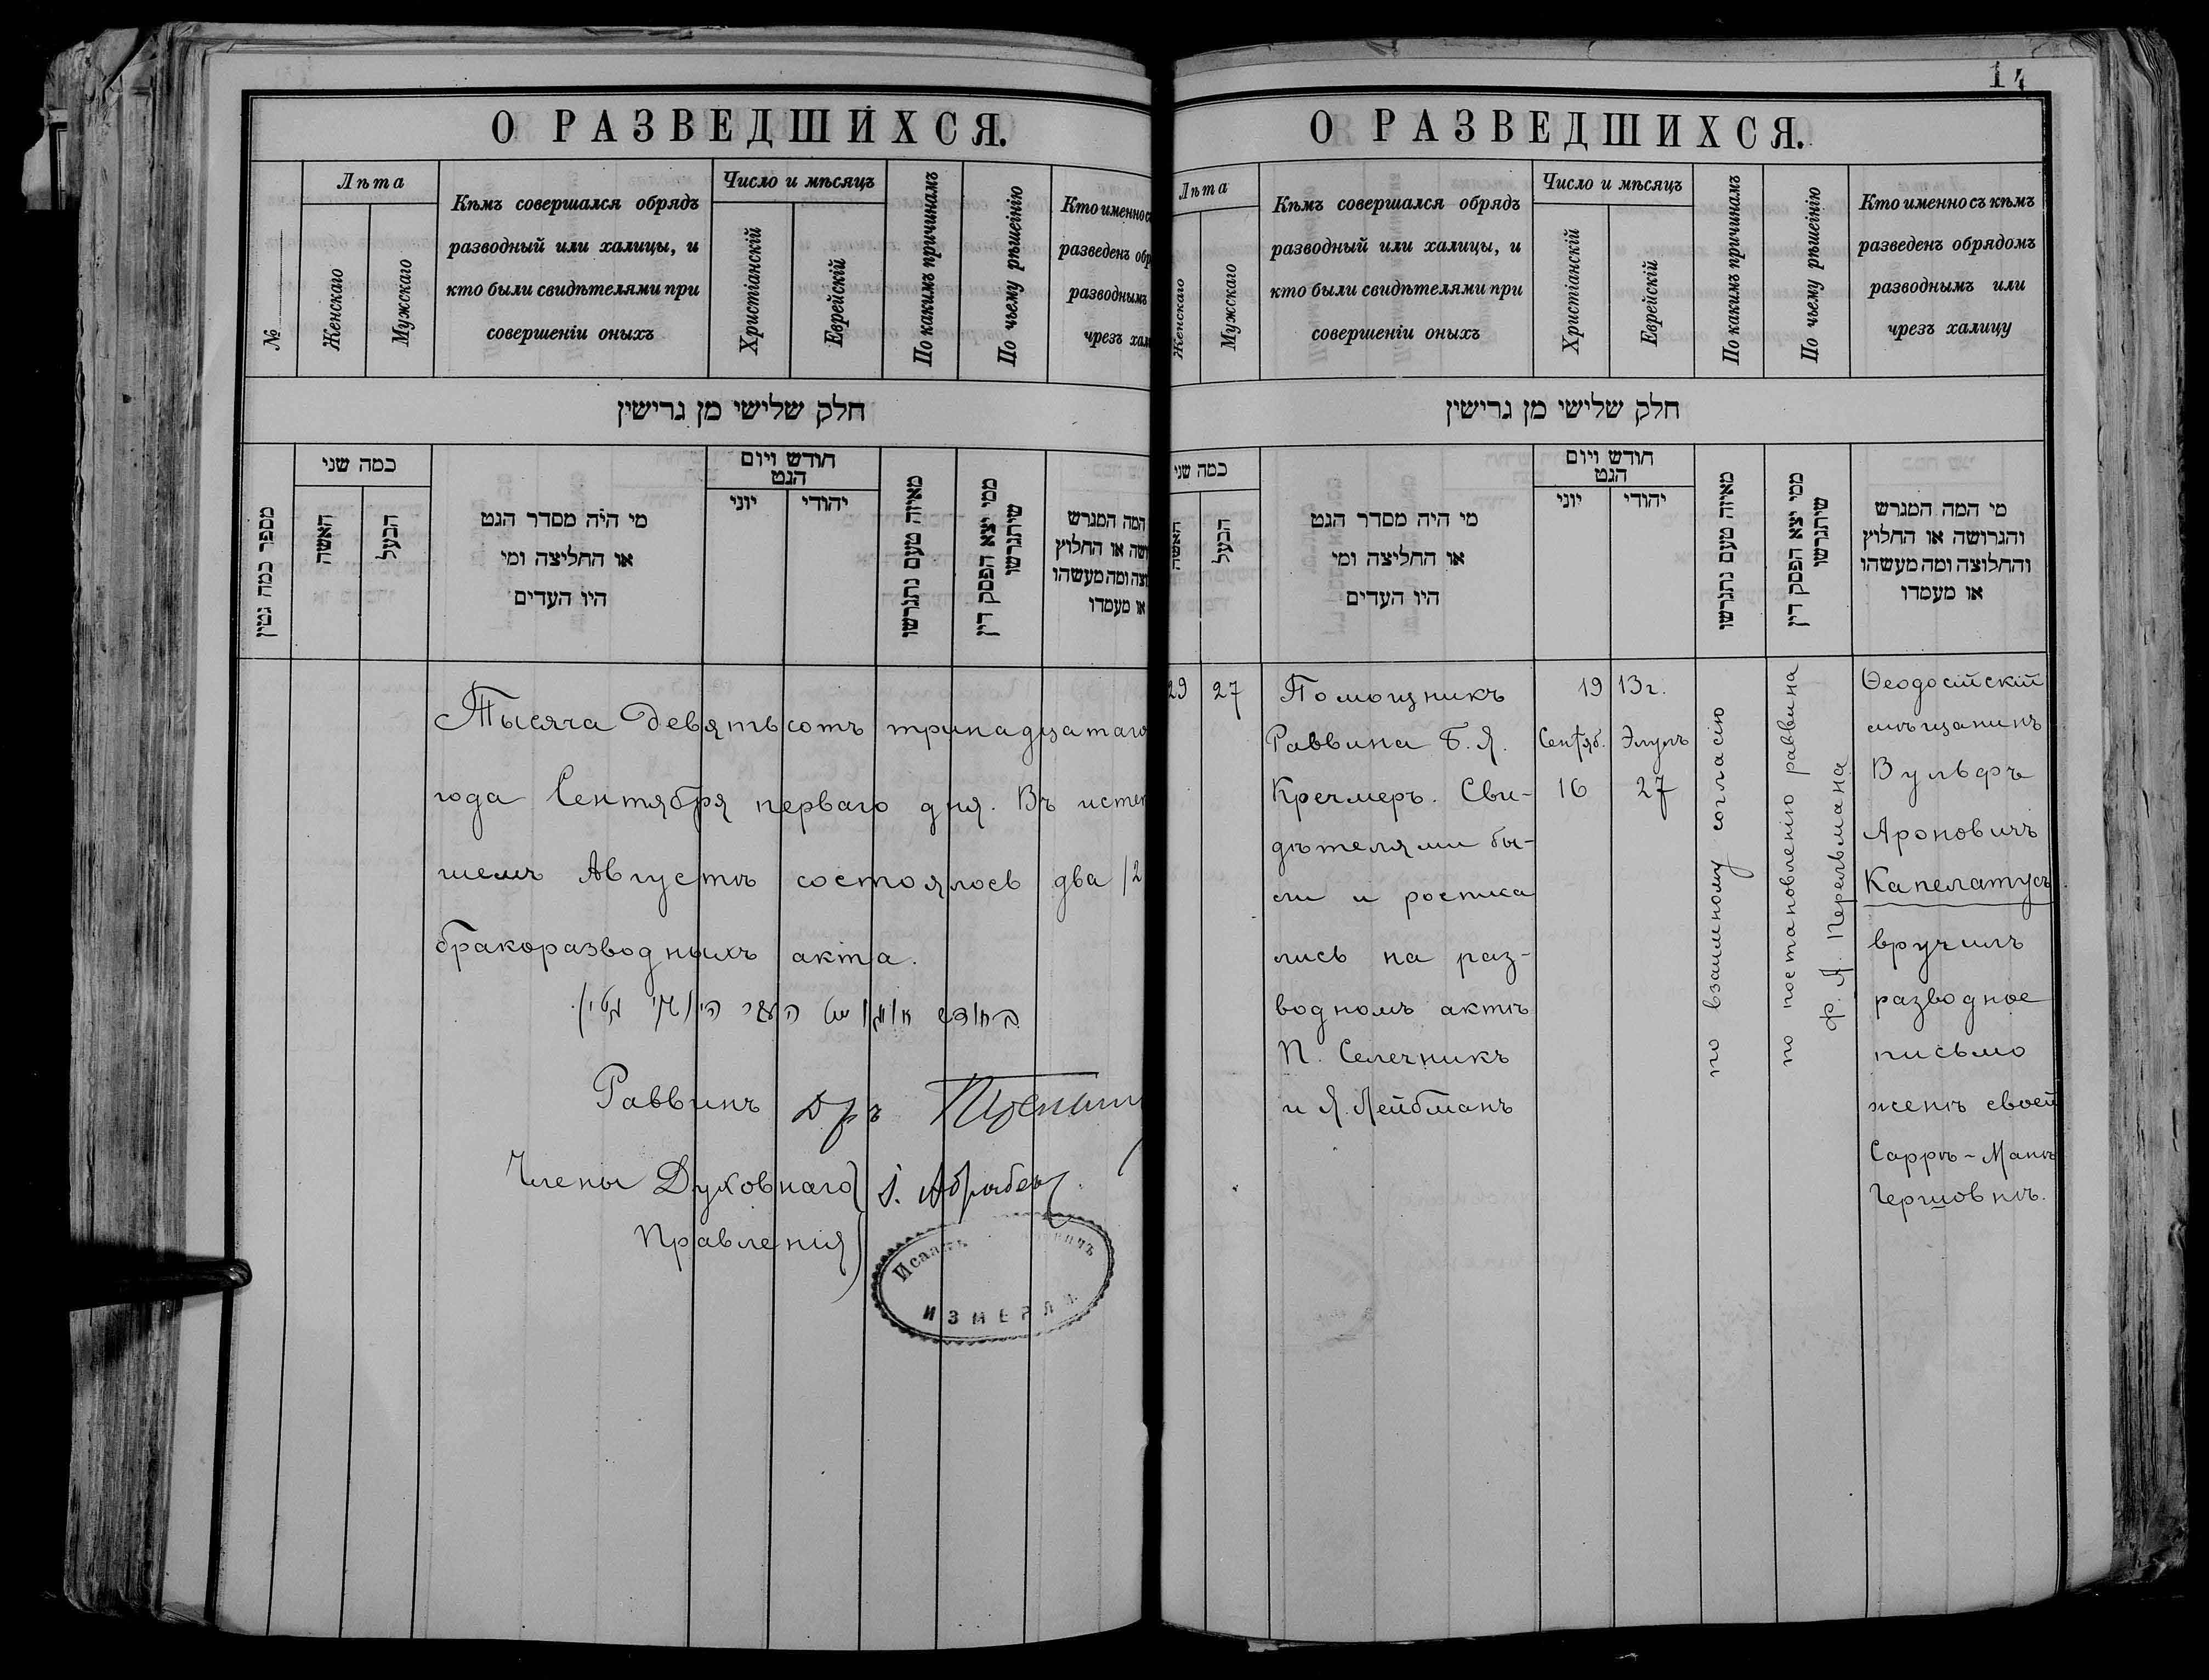 О РАЗВЕДШИХСЯ.
№
Лѣта
Женскаго
Мужскаго
Кѣмъ совершался обрядъ
разводный или халицы, и
кто были свидѣтелями при
совершеніи оныхъ
Число и мѣсяцъ
Христіанскій
Еврейскій
По какимъ причинамъ
По чьему рѣшенію
Кто именно съ
разведенъ обр
разводнымъ
чрезъ хал
חלק שלישי מן גרישין
מספר כמה גטין
כמה שני
האשה
הבעל
מי היה מסדר הגט
או החליצה ומי
היו העדים
חודש ויום
הגט
יוני
יהודי
מאיזה טעם נתגרשו
ממי יצא הפסק דין
שיתגרשו
המה המגרש
ושה או החלוץ
וצה ומה מעשהו
או מעמדו
Тысяча девятьсотъ тринадцатаго
года Сентября перваго дня. Въ истек
шемъ Августѣ состоялось два /2
бракоразводныхъ акта.
בחודש אויגוסט העבר היו שני גטין.
Раввинъ Д-ръ
Члены Духовнаго
Правленія
Исаакъ
ИЗМЕРЛИ
14
О РАЗВЕДШИХСЯ.
Лѣта
Женскаго
Мужскаго
Кѣмъ совершался обрядъ
разводный или халицы, и
кто были свидѣтелями при
совершеніи оныхъ
Число и мѣсяцъ
Христіанскій
Еврейскій
По какимъ причинамъ
По чьему рѣшенію
Кто именно съ кѣмъ
разведенъ обрядомъ
разводнымъ или
чрезъ халицу
חלק שלישי מן גרישין
כמה שני
האשה
הבעל
מי היה מסדר הגט
או החליצה ומי
היו העדים
חודש ויום
הגט
יוני
יהודי
מאיזה טעם נתגרשו
ממי יצא הפסק דין
שיתגרשו
מי המה המגרש
והגרושה או החלוץ
והחלוצה ומה מעשהו
או מעמדו
29
27
Помощникъ
Раввина Б. Я.
Кречмеръ. Сви-
дѣтелями бы-
ли и росписа
лись на раз-
водномъ актѣ
П. Селечникъ
и Я. Лейбманъ
1913 г.
Сентяб. Элулъ
16 27
по взаимному согласію
по постановленію раввина
Ф. Я. Перельмана
Ѳеодосійскій
мѣщанинъ
Вульфъ
Ароновичъ
Капелатусъ
вручилъ
разводное
письмо
женѣ своей
Саррѣ-Манѣ
Гершовнѣ.